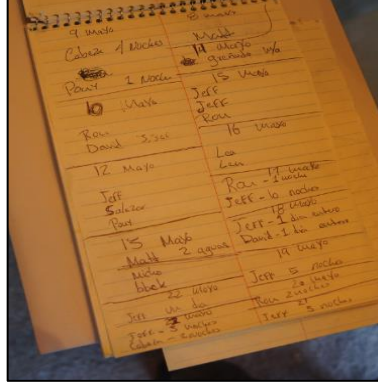 9 Mayo
Cabeza 1 Noches
Pony 1 Noche
10 Mayo
Ron
David
12 Mayo
Jeff
Salazar
Pony
15 Mayo
Matt 2 aguas
Nicho
22 Mayo
Jeff un dia
Mayo
Jeff - 3 noches
Cabeza - 5 noches
8 Mayo
Matt
11 Mayo
15 Mayo
Jeff
Jeff
Ron
16 Mayo
Leo
17 Mayo
Ron - 1 noche
Jeff - 10 noches
18 Mayo
Jeff - 1 dia entero
David - 1 dia entero
19 Mayo
Jeff 5 noches
20 Mayo
Ron 2 noches
21
Jeff 3 noches